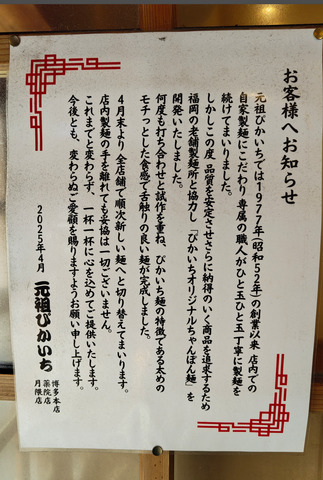 お客様へお知らせ
元祖ぴかいちでは1977年(昭和52年)の創業以来 店内での
自家製麺にこだわり 専属の職人がひと玉ひと玉丁寧に製麺を
続けてまいりました。
しかしこの度、品質を安定させさらに納得のいく商品を追求するため
福岡の老舗製麺所と協力し「ぴかいちオリジナルちゃんぽん麺」を
開発いたしました。
何度も打ち合わせと試作を重ね、ぴかいち麺の特徴である太めの
モチっとした食感で舌触りの良い麺が完成しました。
4月末より 全店舗で順次新しい麺へと切り替えてまいります。
店内製麺の手を離れても妥協は一切ございません。
これまでと変わらず、一杯一杯に心を込めてご提供いたします。
今後とも、変わらぬご愛顧を賜りますようお願い申し上げます。
2025年4月 元祖ぴかいち
博多本店
薬院店
月隈店